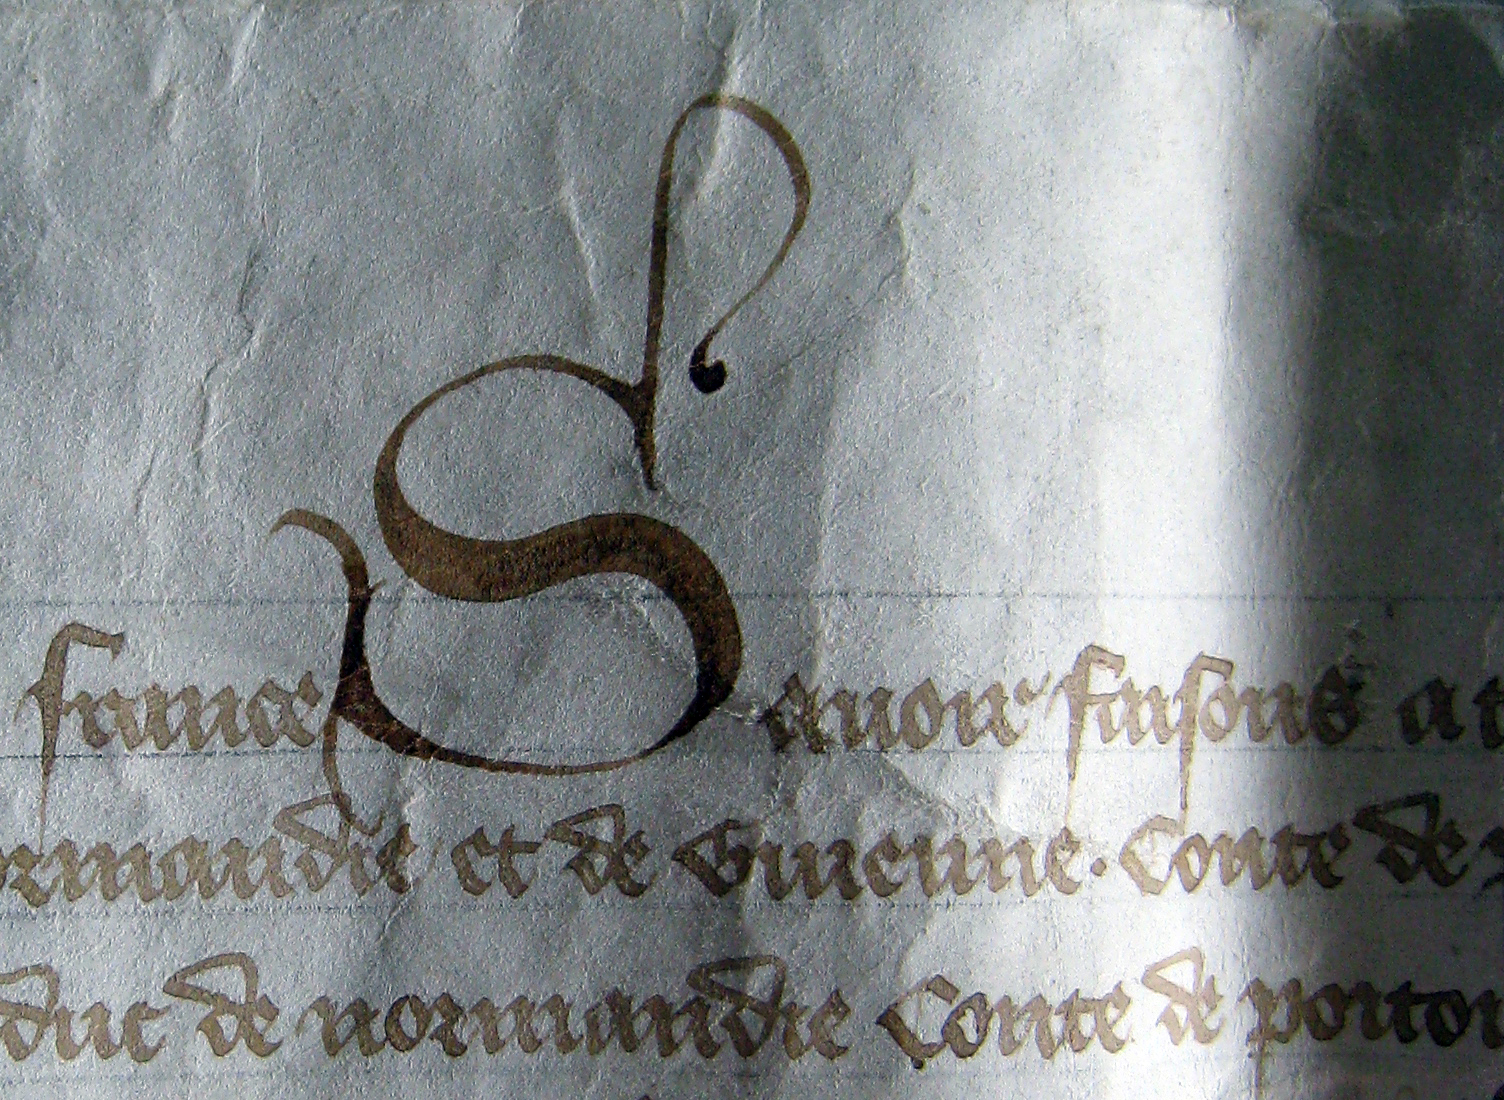 france Sauoir faisons a t
ormandie et de Guienne. Conte de
duc de normandie Conte de poitou